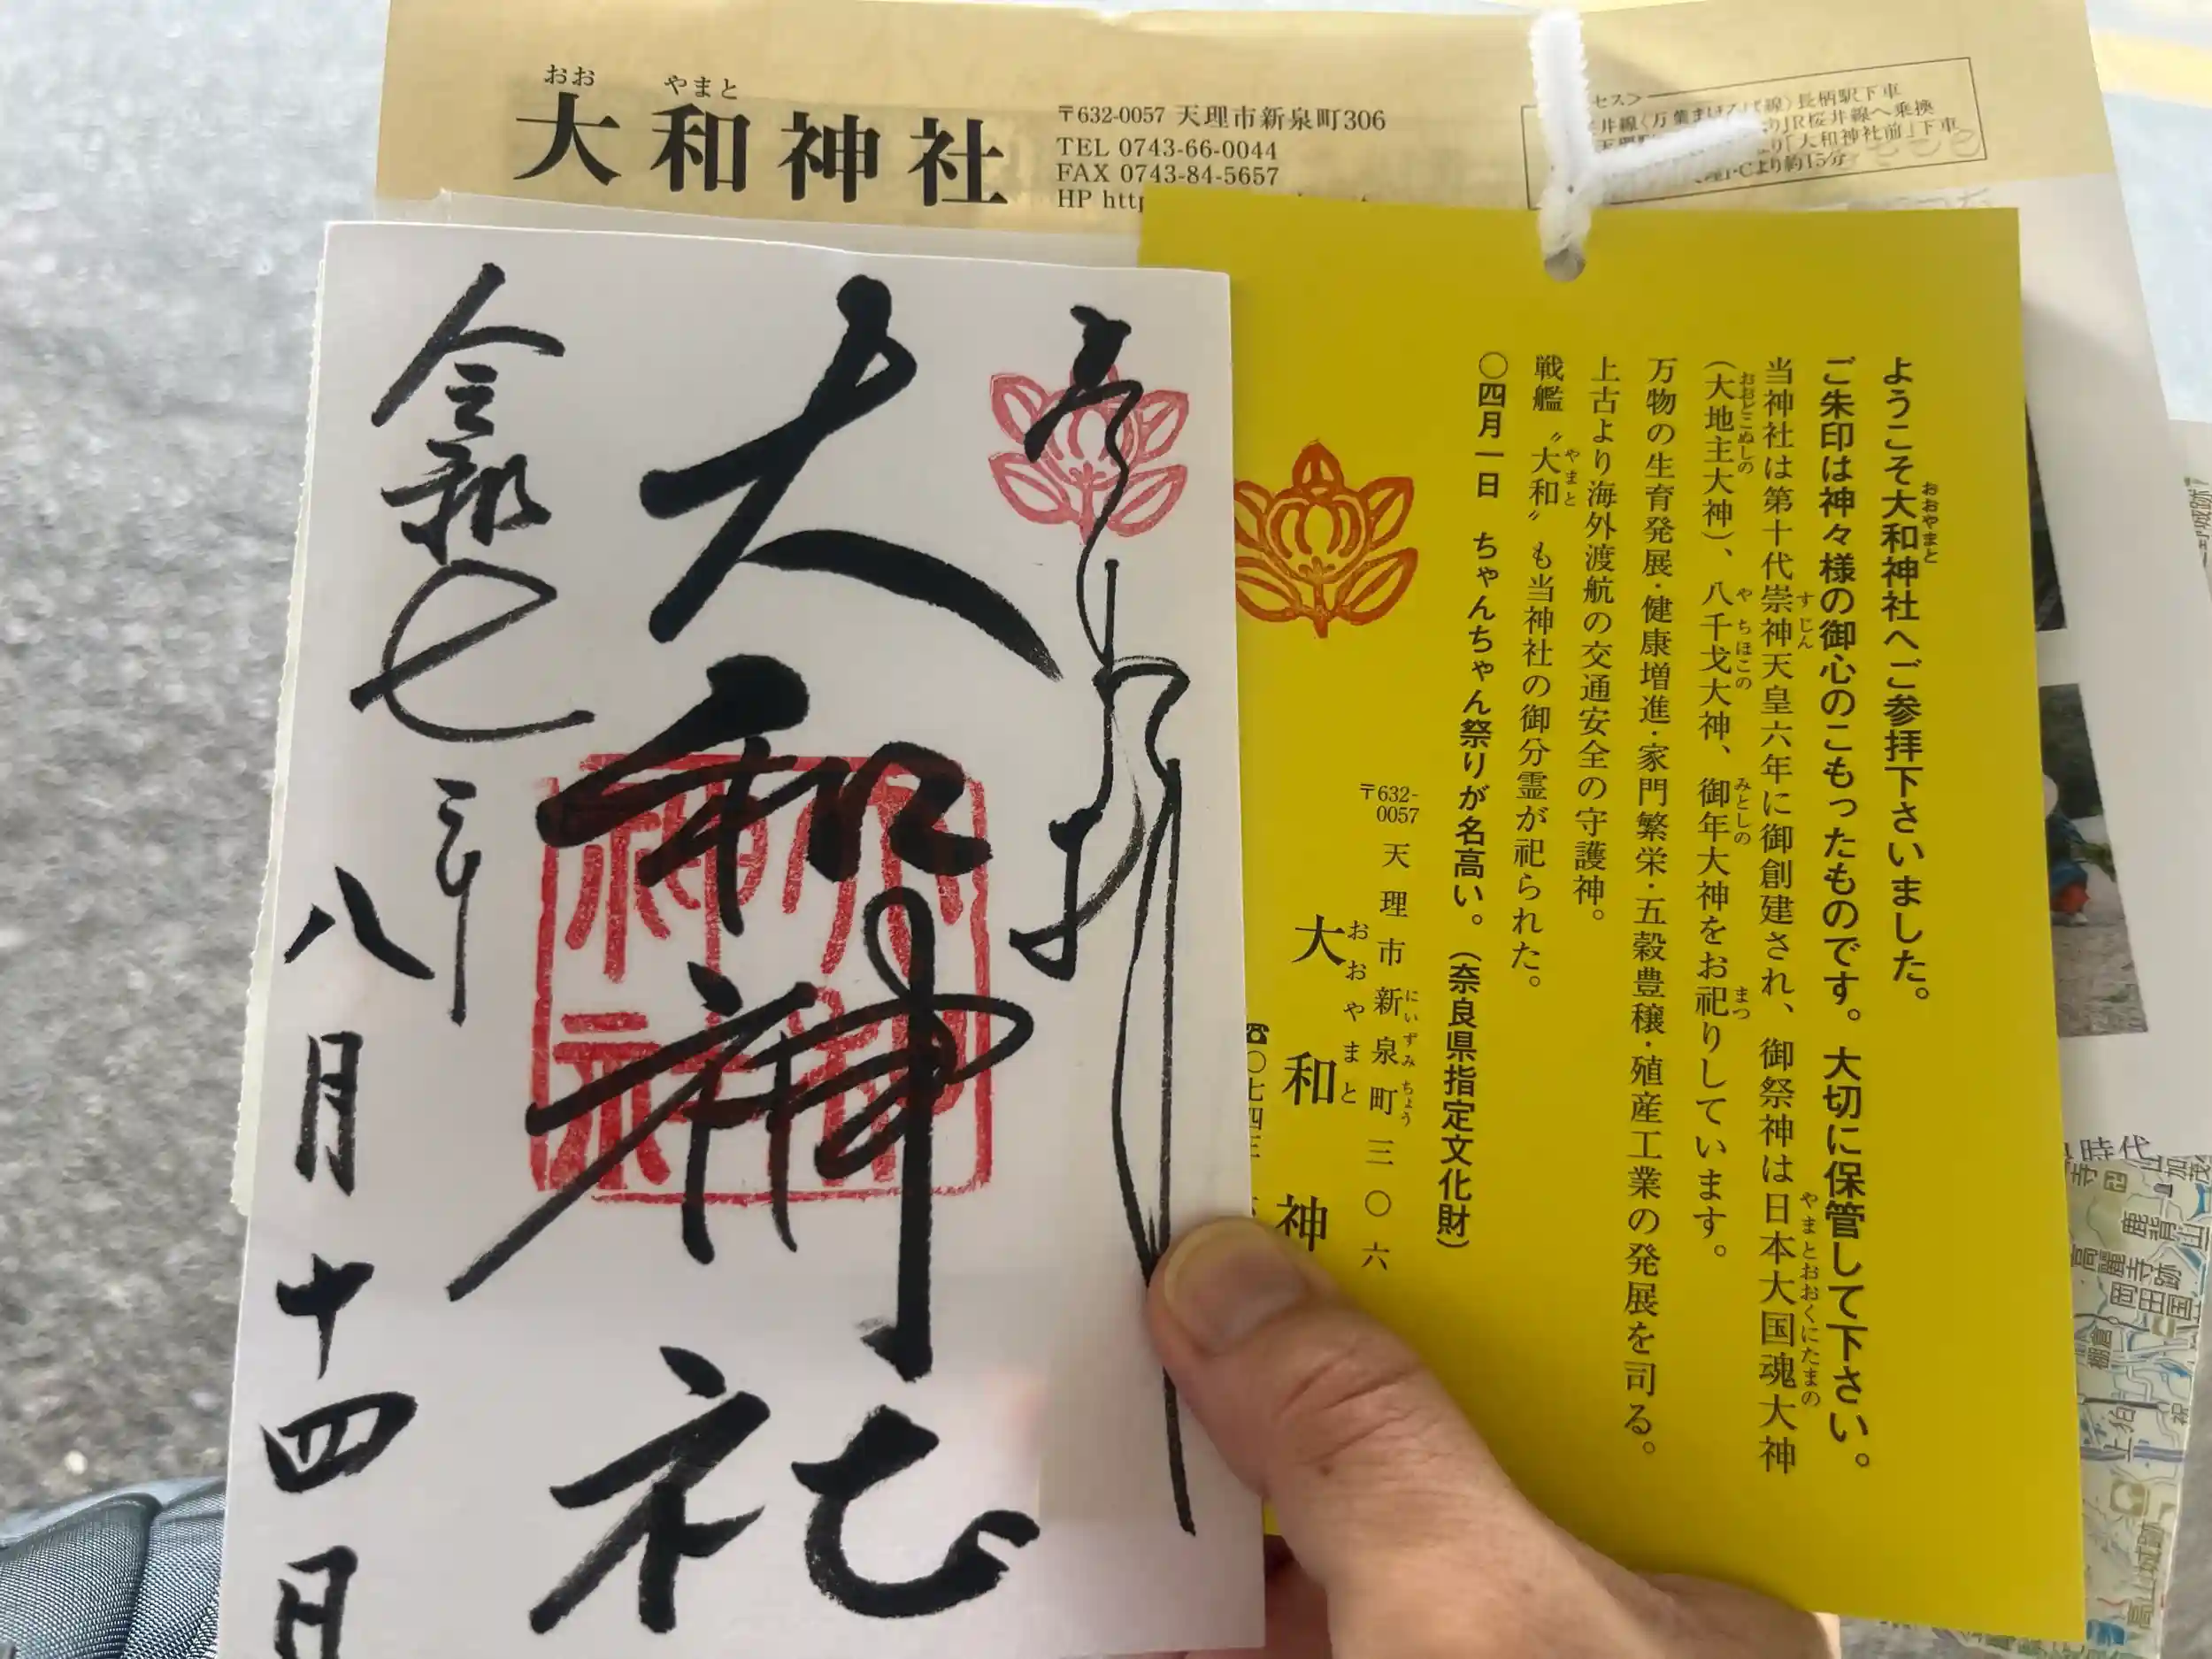 大和神社
おお やまと
〒632-0057 天理市新泉町306
TEL 0743-66-0044
FAX 0743-84-5657
HP http
長柄駅下車
JR桜井線へ乗換
「大和神社前」下車
より約15分
奉拝
大和神社
令和七年
八月十四日
ようこそ大和神社へご参拝下さいました。
おおやまと
ご朱印は神々様の御心のこもったものです。大切に保管して下さい。
当神社は第十代崇神天皇六年に御創建され、御祭神は日本大国魂大神
すじん やまとおおくにたまの
(大地主大神)、八千戈大神、御年大神をお祀りしています。
おおどこぬしの やちほこの みとしの まつ
万物の生育発展・健康増進・家門繁栄・五穀豊穣・殖産工業の発展を司る。
上古より海外渡航の交通安全の守護神。
戦艦〝大和〟も当神社の御分霊が祀られた。
やまと
〇四月一日 ちゃんちゃん祭りが名高い。(奈良県指定文化財)
〒632-0057 天理市新泉町三〇六
にいずみちょう
大和神
おおやまと
☎〇七四三
時代